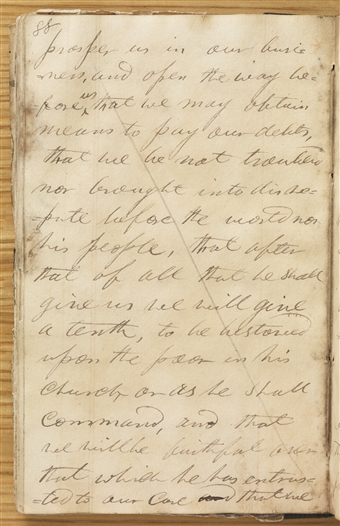 88
prosper us in our busi-
-ness, and open the way be-
fore us, that we may obtain
means to pay our debts,
that we be not troubled
nor brought into disre-
-pute before the world nor
his people, that after
that of all that he shall
give us we will give
a tenth, to be bestowed
upon the poor in his
church, or as he shall
command, and that
we will be faithful over
that which he has entrus-
-ted to our care and that we